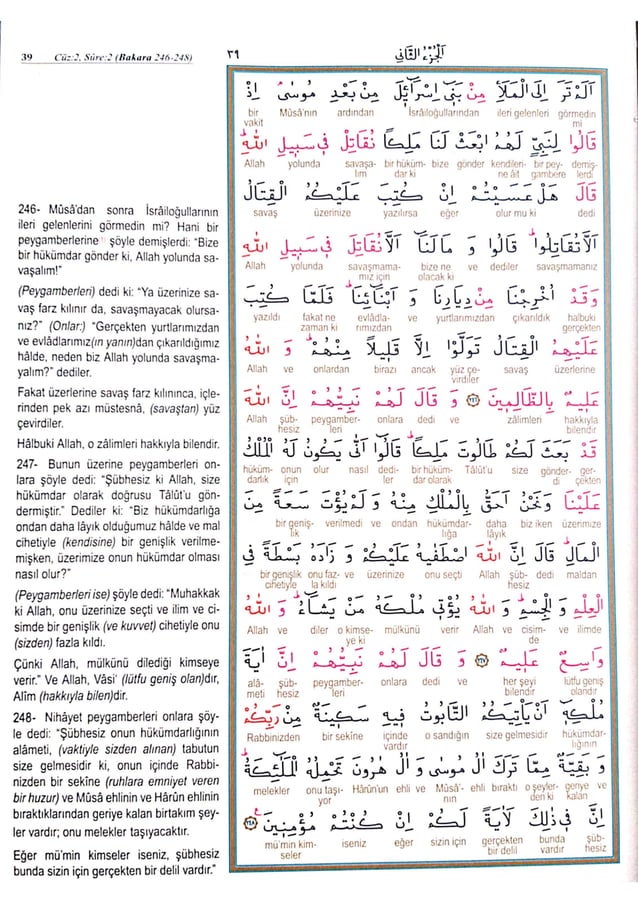 39 Cüz:2, Sûre:2 (Bakara 246-248) ٣٩ الجزء الثاني
246- Mûsâ'dan sonra İsrâiloğullarının
ileri gelenlerini görmedin mi? Hani bir
peygamberlerine şöyle demişlerdi: "Bize
bir hükümdar gönder ki, Allah yolunda sa-
vaşalım!"
(Peygamberleri) dedi ki: "Ya üzerinize sa-
vaş farz kılınır da, savaşmayacak olursa-
nız?" (Onlar:) "Gerçekten yurtlarımızdan
ve evlâdlarımız(ın yanın)dan çıkarıldığımız
hâlde, neden biz Allah yolunda savaşma-
yalım?" dediler.
Fakat üzerlerine savaş farz kılınınca, içle-
rinden pek azı müstesnâ, (savaştan) yüz
çevirdiler.
Hâlbuki Allah, o zâlimleri hakkıyla bilendir.
247- Bunun üzerine peygamberleri on-
lara şöyle dedi: "Şübhesiz ki Allah, size
hükümdar olarak doğrusu Tâlût'u gön-
dermiştir." Dediler ki: "Biz hükümdarlığa
ondan daha lâyık olduğumuz hâlde ve mal
cihetiyle (kendisine) bir genişlik verilme-
mişken, üzerimize onun hükümdar olması
nasıl olur?"
(Peygamberleri ise) şöyle dedi: "Muhakkak
ki Allah, onu üzerinize seçti ve ilim ve ci-
simde bir genişlik (ve kuvvet) cihetiyle onu
(sizden) fazla kıldı.
Çünki Allah, mülkünü dilediği kimseye
verir." Ve Allah, Vâsi' (lütfu geniş olan)dır,
Alîm (hakkıyla bilen)dir.
248- Nihâyet peygamberleri onlara şöy-
le dedi: "Şübhesiz onun hükümdarlığının
alâmeti, (vaktiyle sizden alınan) tabutun
size gelmesidir ki, onun içinde Rabbi-
nizden bir sekîne (ruhlara emniyet veren
bir huzur) ve Mûsâ ehlinin ve Hârûn ehlinin
bıraktıklarından geriye kalan birtakım şey-
ler vardır; onu melekler taşıyacaktır.
Eğer mü'min kimseler iseniz, şübhesiz
bunda sizin için gerçekten bir delil vardır."
اَلَمْ تَرَ اِلَى الْمَلَاِ مِنْ بَنٖٓي اِسْرَٓائٖلَ مِنْ بَعْدِ مُوسٰىۢ اِذْ
bir vakit Mûsâ'nın ardından İsrâiloğullarından ileri gelenleri görmedin mi
قَالُوا لِنَبِيٍّ لَهُمُ ابْعَثْ لَنَا مَلِكًا نُقَاتِلْ فٖي سَبٖيلِ اللّٰهِۜ
Allah yolunda savaşa-lım bir hüküm-dar ki bize gönder kendileri-ne âit bir pey-gambere demiş-lerdi
قَالَ هَلْ عَسَيْتُمْ اِنْ كُتِبَ عَلَيْكُمُ الْقِتَالُ
savaş üzerinize yazılırsa eğer olur mu ki dedi
اَلَّا تُقَاتِلُواۜ قَالُوا وَ مَا لَنَٓا اَلَّا نُقَاتِلَ فٖي سَبٖيلِ اللّٰهِ
Allah yolunda savaşmama-mız için bize ne olacak ki ve dediler savaşmamanız
وَقَدْ اُخْرِجْنَا مِنْ دِيَارِنَا وَ اَبْنَٓائِنَاۜ فَلَمَّا كُتِبَ
yazıldı fakat ne zaman ki evlâdla-rımızdan ve yurtlarımızdan çıkarıldık halbuki gerçekten
عَلَيْهِمُ الْقِتَالُ تَوَلَّوْا اِلَّا قَلٖيلًا مِنْهُمْۜ وَ اللّٰهُ
Allah ve onlardan birazı ancak yüz çe-virdiler savaş üzerlerine
عَلٖيمٌ بِالظَّالِمٖينَ ﴿٢٤٦﴾ وَ قَالَ لَهُمْ نَبِيُّهُمْ اِنَّ اللّٰهَ
Allah şüb-hesiz peygamber-leri onlara dedi ve zâlimleri hakkıyla bilendir
قَدْ بَعَثَ لَكُمْ طَالُوتَ مَلِكًاۜ قَالُٓوا اَنّٰى يَكُونُ لَهُ الْمُلْكُ
hüküm-darlık onun için olur nasıl dedi-ler bir hüküm-dar olarak Tâlût'u size gönder-di ger-çekten
عَلَيْنَا وَ نَحْنُ اَحَقُّ بِالْمُلْكِ مِنْهُ وَ لَمْ يُؤْتَ سَعَةً مِنَ
bir geniş-lik verilmedi ve ondan hükümdar-lığa daha lâyık biz iken üzerimize
الْمَالِۜ قَالَ اِنَّ اللّٰهَ اصْطَفٰيهُ عَلَيْكُمْ وَ زَادَهُ بَسْطَةً فِي
bir genişlik cihetiyle onu faz-la kıldı ve üzerinize onu seçti Allah şüb-hesiz dedi maldan
الْعِلْمِ وَ الْجِسْمِۜ وَ اللّٰهُ يُؤْتٖي مُلْكَهُ مَنْ يَشَٓاءُۜ وَ اللّٰهُ
Allah ve diler o kimse-ye ki mülkünü verir Allah ve cisim-de ve ilimde
وَاسِعٌ عَلٖيمٌ ﴿٢٤٧﴾ وَ قَالَ لَهُمْ نَبِيُّهُمْ اِنَّ اٰيَةَ
alâ-meti şüb-hesiz peygamber-leri onlara dedi ve her şeyi bilendir lütfu geniş olandır
مُلْكِهٖٓ اَنْ يَأْتِيَكُمُ التَّابُوتُ فٖيهِ سَكٖينَةٌ مِنْ رَبِّكُمْ
Rabbinizden bir sekîne içinde vardır o sandığın size gelmesidir hükümdar-lığının
وَ بَقِيَّةٌ مِمَّا تَرَكَ اٰلُ مُوسٰى وَ اٰلُ هٰرُونَ تَحْمِلُهُ الْمَلٰٓئِكَةُۜ
melekler onu taşı-yor Hârûn'un ehli ve Mûsâ'-nın ehli bıraktı o şeyler-den ki geriye kalan ve
اِنَّ فٖي ذٰلِكَ لَاٰيَةً لَكُمْ اِنْ كُنْتُمْ مُؤْمِنٖينَ ﴿٢٤٨﴾
mü'min kim-seler iseniz eğer sizin için gerçekten bir delil bunda vardır şüb-hesiz